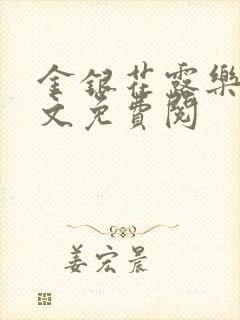 金銀花露樂
文免費閱
姜宏晨